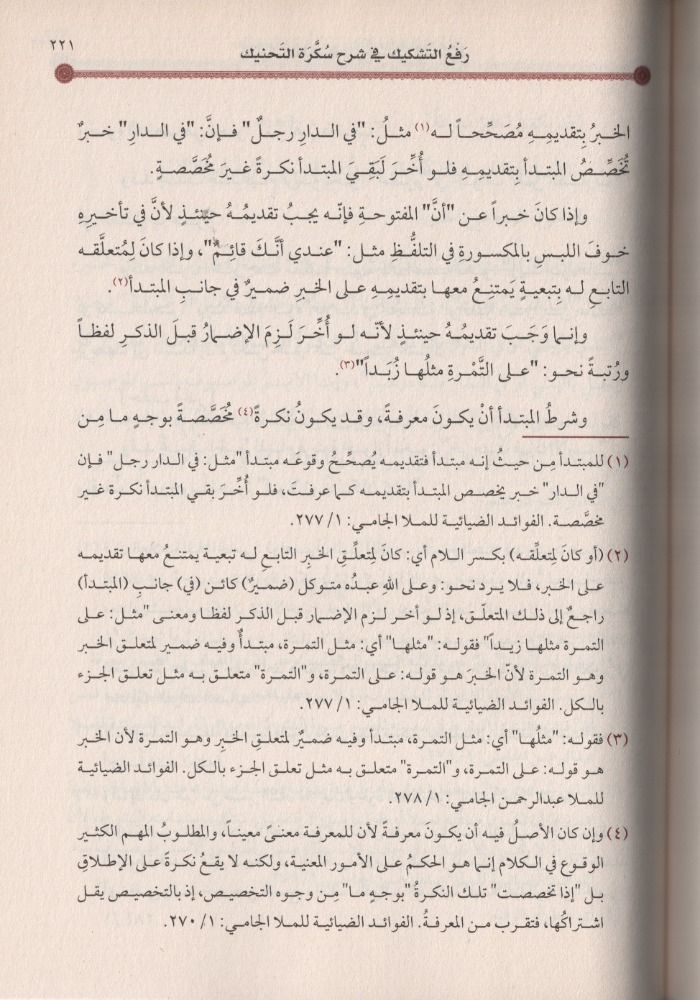 ٢٢١
رَفْعُ التَشكيك في شرح سُكَّرَة التَحنيك
الخبرُ بِتقديمِهِ مُصَحِّحاً له(١) مثلُ: "في الدارِ رجلٌ" فإنَّ: "في الدارِ" خبرٌ
تُخَصِّصُ المبتدأ بِتقديمِهِ فلو أُخِّرَ لَبَقِيَ المبتدأ نكرةً غيرَ مُخَصَّصةٍ.
وإذا كانَ خبراً عن "أنَّ" المفتوحةِ فإنّه يجبُ تقديمُهُ حينئذٍ لأنَّ في تأخيرِهِ
خوفَ اللبسِ بالمكسورةِ في التلفُّظِ مثل: "عندي أنَّكَ قائِمٌ"، وإذا كانَ لِمُتعلَّقه
التابعِ له بِتبعيةٍ يَمتنِعُ معها بتقديمِهِ على الخبرِ ضميرٌ في جانبِ المبتدأ(٢).
وإنما وَجَبَ تقديمُهُ حينئذٍ لأنّه لو أُخِّرَ لَزِمَ الإضمارُ قبلَ الذكرِ لفظاً
ورُتبةً نحو: "على التَّمْرةِ مثلُها زُبَداً"(٣).
وشرطُ المبتدأ أنْ يكونَ معرفةً، وقد يكونُ نكرةً(٤) مُخَصَّصةً بوجهٍ ما مِن
(١) للمبتدأ مِن حيثُ إنه مبتدأ فتقديمه يُصحِّحُ وقوعَه مبتدأ "مثل: في الدار رجل" فإن
"في الدار" خبر يخصص المبتدأ بتقديمه كما عرفتَ، فلو أُخِّرَ بقي المبتدأ نكرة غير
مخصَّصة. الفوائد الضيائية للملا الجامي: ١/ ٢٧٧.
(٢) (أو كانَ لمتعلِّقه) بكسر اللام أي: كانَ لمتعلِّقِ الخبرِ التابعِ له تبعية يمتنعُ معها تقديمه
على الخبر، فلا يرد نحو: وعلى اللهِ عبدُه متوكل (ضميرٌ) كائن (في) جانبِ (المبتدأ)
راجعٌ إلى ذلك المتعلَّق، إذ لو أخر لزم الإضمار قبل الذكر لفظا ومعنى "مثل: على
التمرة مثلها زيداً" فقوله: "مثلها" أي: مثل التمرة، مبتدأٌ وفيه ضمير لمتعلق الخبر
وهو التمرة لأنّ الخبرَ هو قوله: على التمرة، و"التمرة" متعلق به مثل تعلق الجزء
بالكل. الفوائد الضيائية للملا الجامي: ١/ ٢٧٧.
(٣) فقوله: "مثلُها" أي: مثل التمرة، مبتدأ وفيه ضميرٌ لمتعلقِ الخبرِ وهو التمرة لأن الخبر
هو قوله: على التمرة، و"التمرة" متعلق به مثل تعلق الجزء بالكل. الفوائد الضيائية
للملا عبدالرحمن الجامي: ١/ ٢٧٨.
(٤) وإن كان الأصلُ فيه أن يكونَ معرفةً لأن للمعرفة معنىً معيناً، والمطلوبُ المهم الكثير
الوقوع في الكلام إنما هو الحكمُ على الأمور المعنية، ولكنه لا يقعُ نكرةً على الإطلاق
بل "إذا تخصصت" تلك النكرةُ "بوجهٍ ما" مِن وجوه التخصيص، إذ بالتخصيص يقل
اشتراكُها، فتقرب من المعرفةُ. الفوائد الضيائية للملا الجامي: ١/ ٢٧٠.